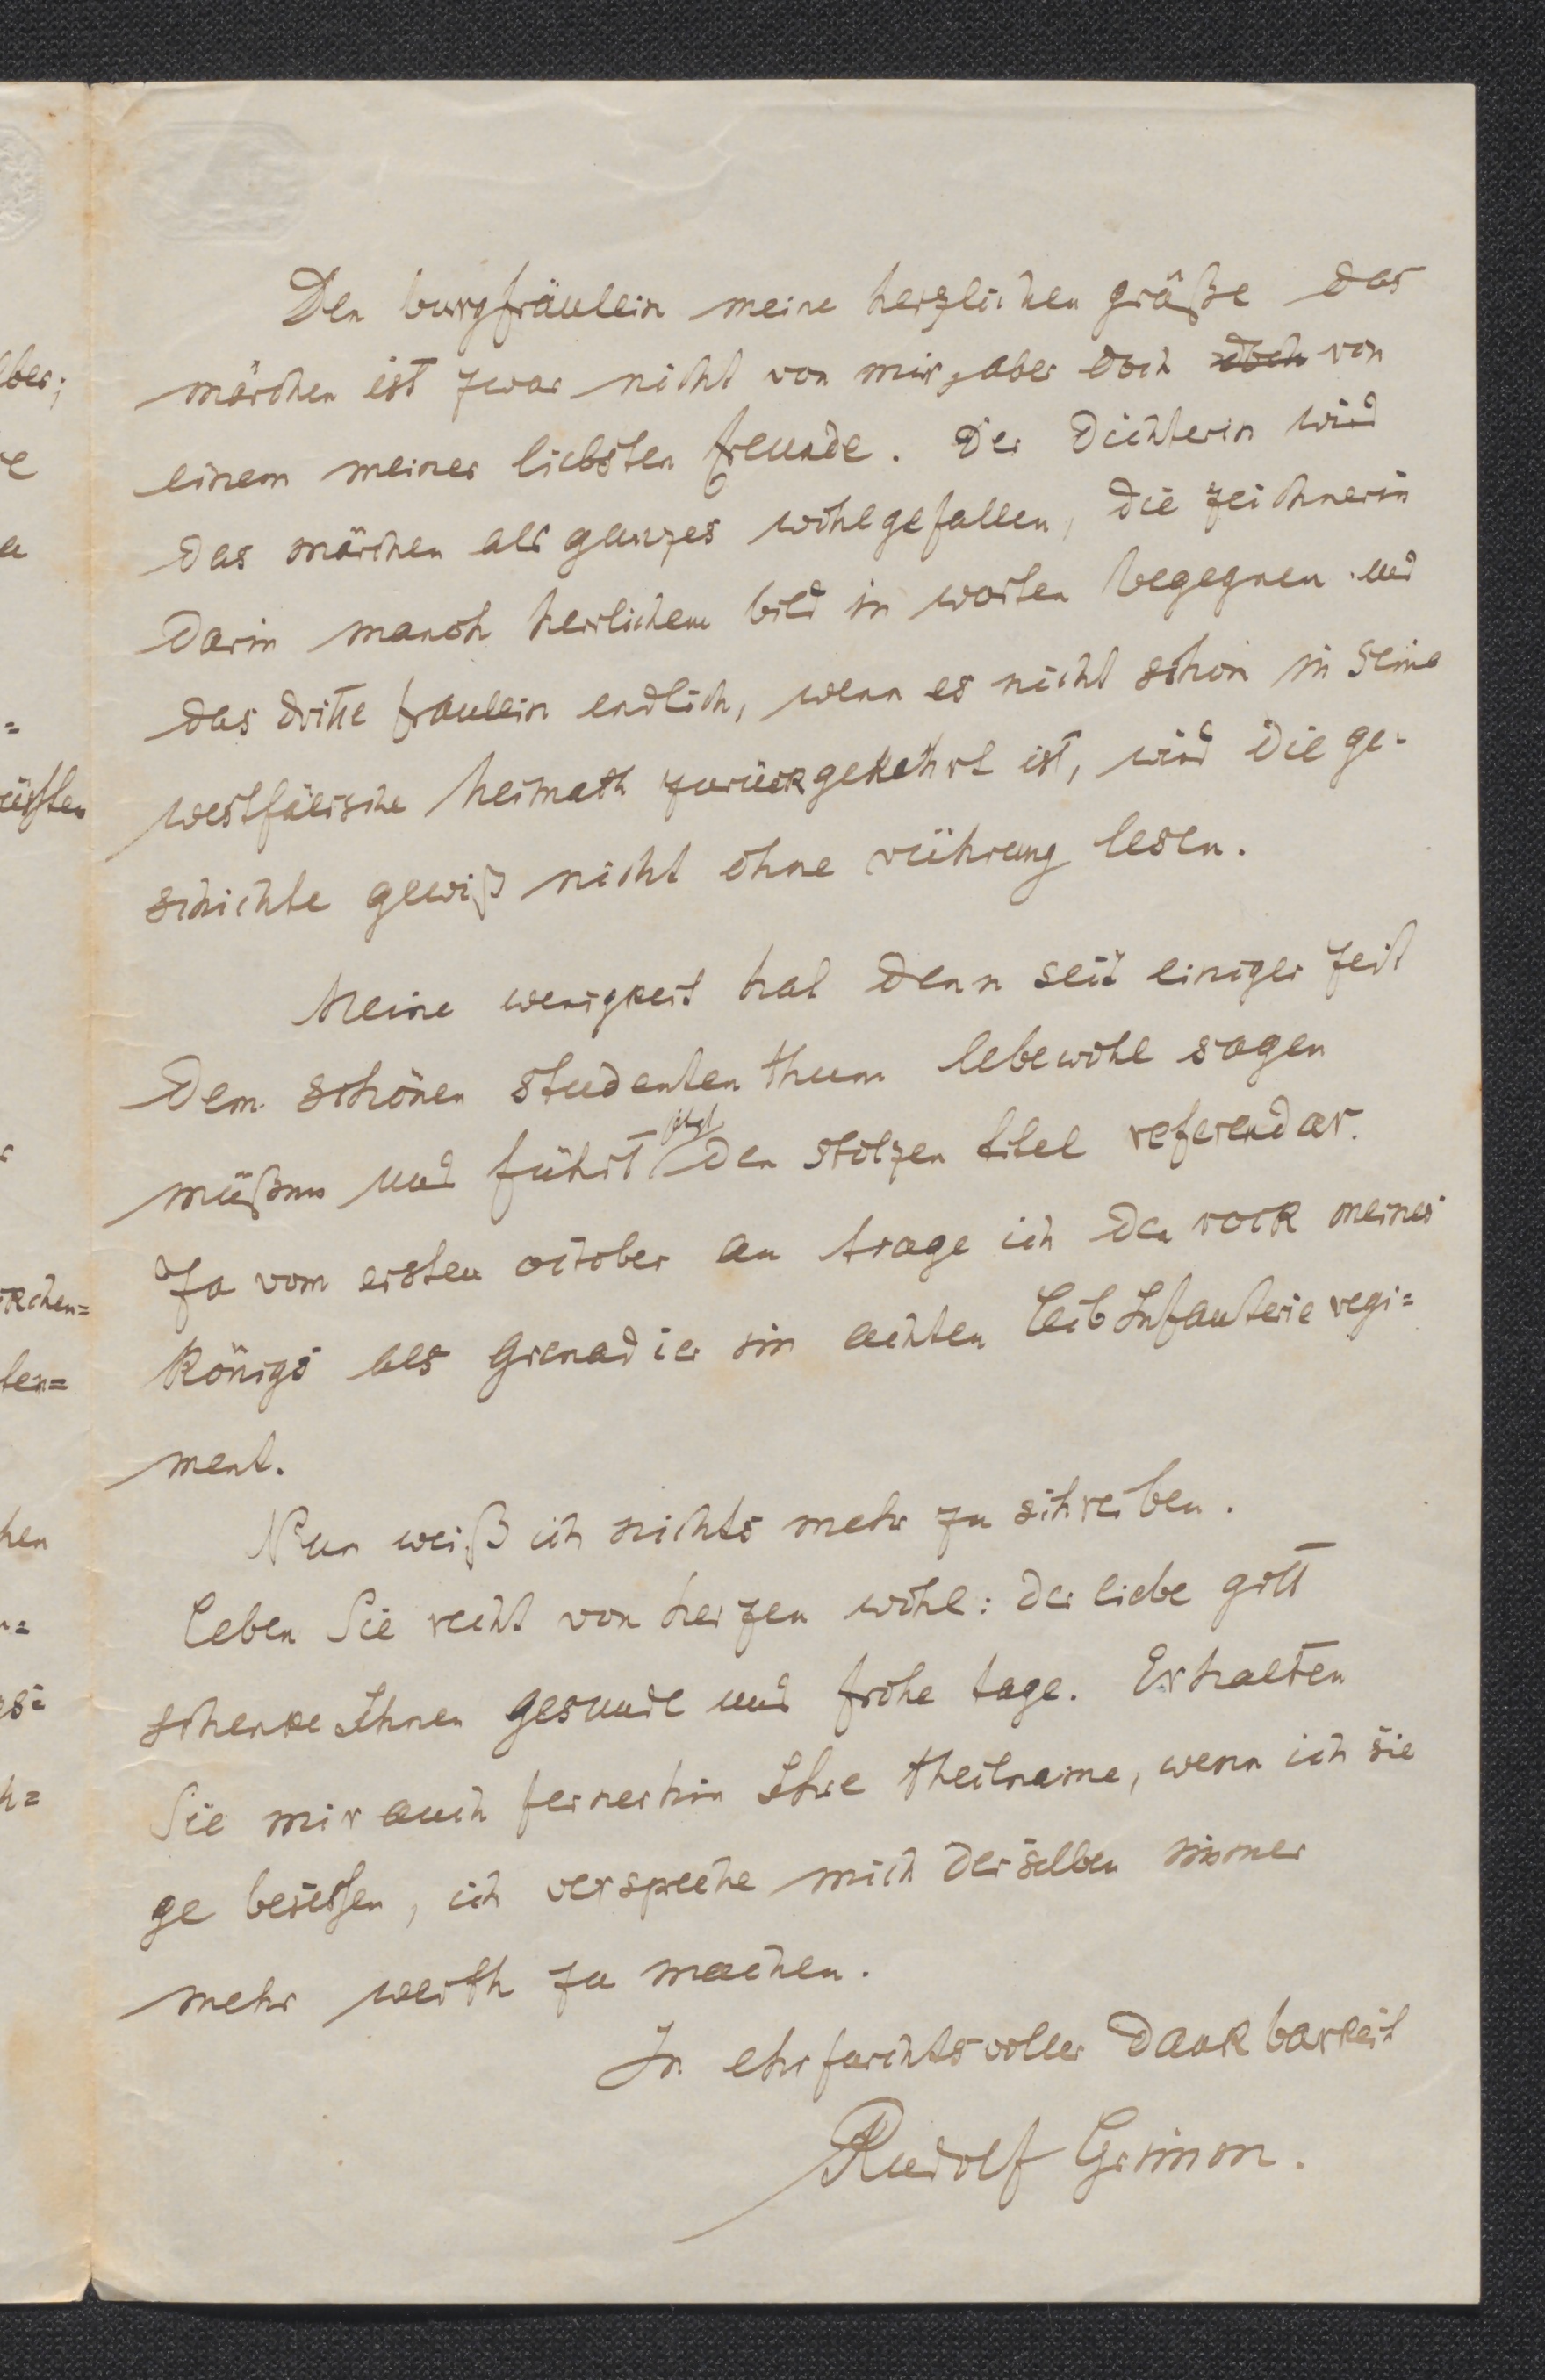 Den burgfräulein meine herzlichen grüße das
märchen ist zwar nicht von mir, aber doch doch von
einem meiner liebsten freunde. Der Dichterin wird
das märchen als ganzes wohlgefallen, die zeichnerin
darin manch herrlichem bild in worten begegnen und
das dritte fraulein endlich, wenn es nicht schon in seine
westfälische heimath zurückgekehrt ist, wird die ge-
schichte gewiß nicht ohne rührung lesen.
Meine wenigkeit hat denn seit einiger zeit
dem schönen studententhum lebewohl sagen
müßen und führt jetzt den stolzen titel referendar.
Ja vom ersten october an trage ich den rock meines
Königs als Grenadier im achten LeibInfanterieregi=
ment.
Nun weiß ich nichts mehr zu schreiben.
Leben Sie recht von herzen wohl: der liebe gott
schenke Ihnen gesunde und frohe tage. Erhalten
Sie mir auch fernerhin Ihre theilname, wenn ich sie
ge besessen, ich verspreche mich derselben immer
mehr werth zu machen.
In ehrfurchtsvoller Dankbarkeit
Rudolf Grimm.
lber;
üsten
rchen=
ten=
hen